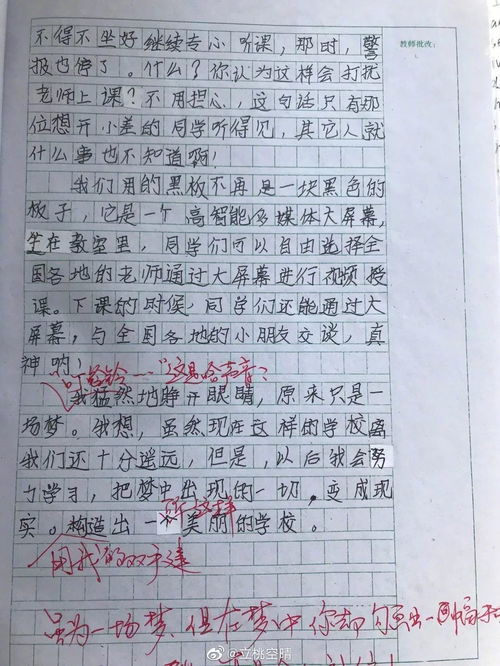 教师批改：
不得不坐好继续专心听课，那时，警
报也停了。什么？你认为这样会打扰
老师上课？不用担心，这句话只有那
位想开小差的同学听得见，其它人就
什么事也不知道啊！
我们用的黑板不再是一块黑色的
板子，它是一个高智能多媒体大屏幕，
坐在教室里，同学们可以自由选择全
国各地的老师通过大屏幕进行视频授
课。下课的时候，同学们还能通过大
屏幕，与全国各地的小朋友交谈，真
神哟！
"叮铃铃……"这是啥声音？
我猛然地睁开眼睛，原来只是一
场梦。我想，虽然现在这样的学校离
我们还十分遥远，但是，以后我会努
力学习，把梦中出现的一切，变成现
实。构造出一所这样美丽的学校。
用我的双手建
虽为一场梦，但在梦中你却勾画出一幅
@立桃空晴